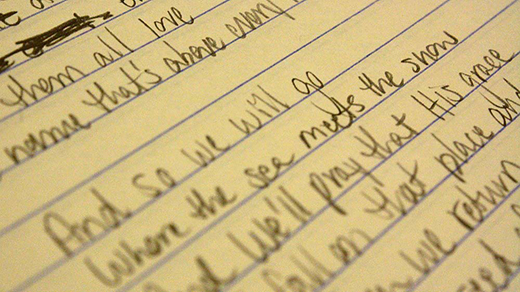 them all love
name that's above every
And so we will go
Where the sea meets the snow
And We'll pray that His grace
fall on that place and
we return